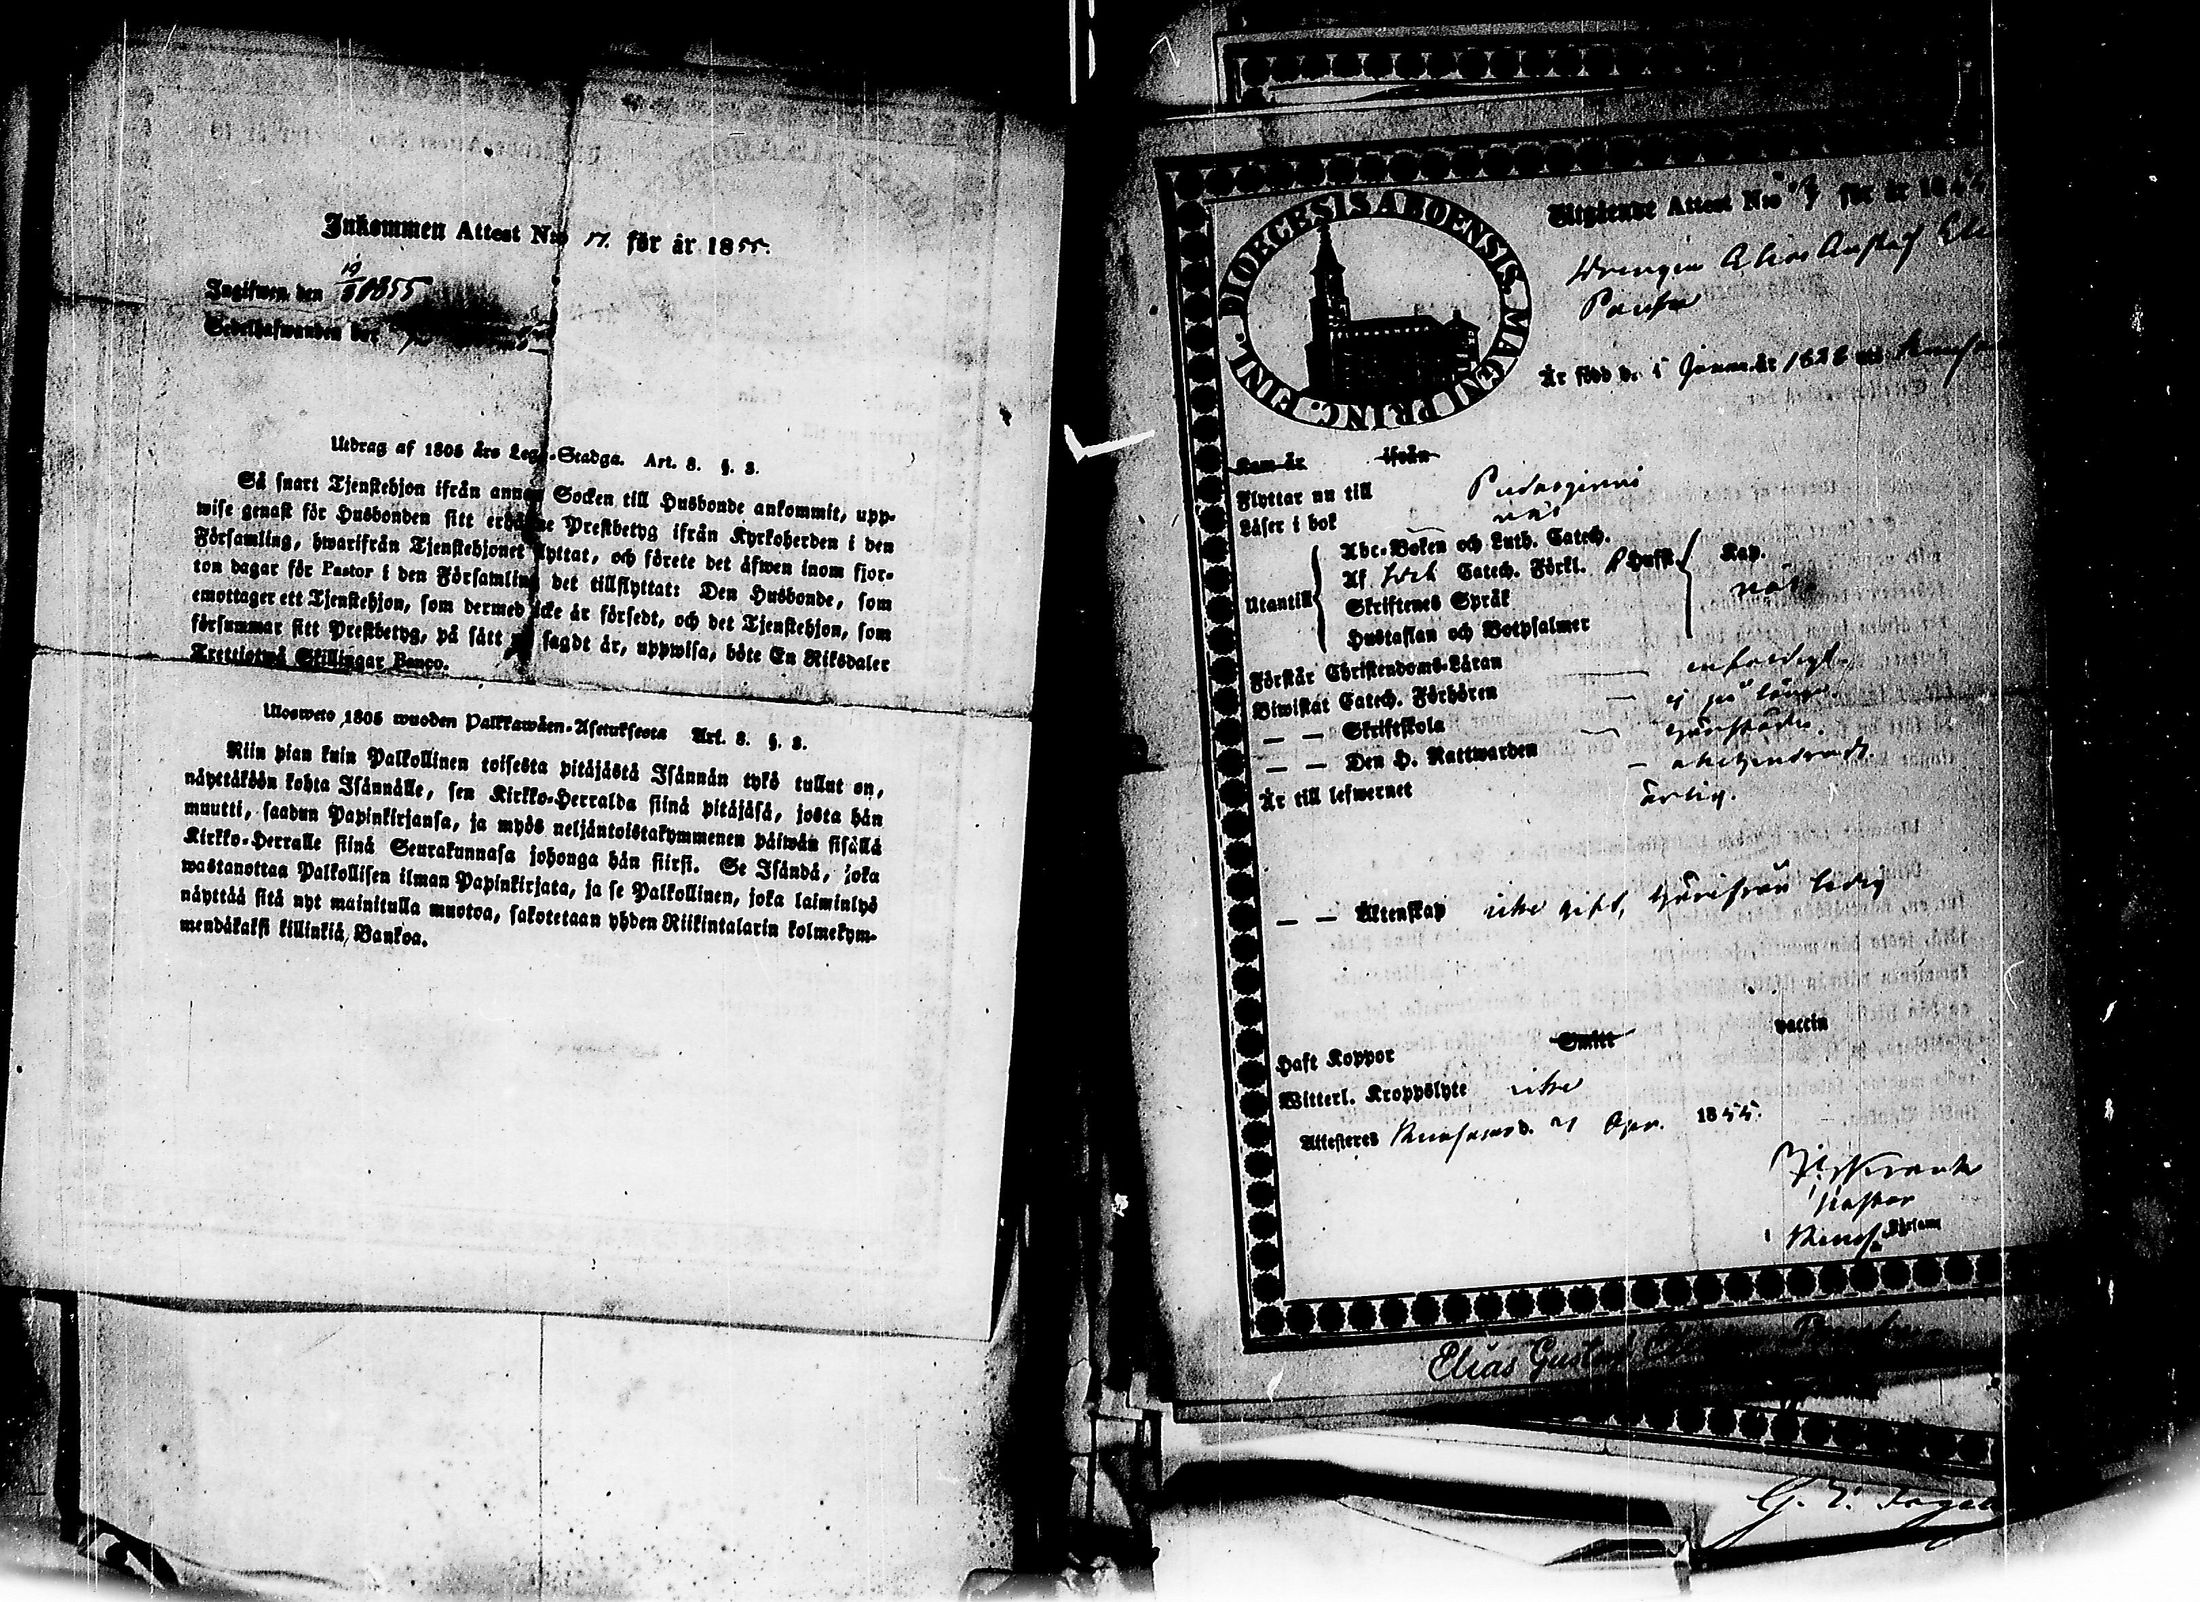 Inkommen Attest N:o 17. för år 1855.
Ingifwen den 19/8 1855
Sedelhafwanden bor
Utdrag af 1805 års Lego-Stadga. Art. 8. §. 3.
Så snart Tjenstehjon ifrån annan Socken till Husbonde ankommit, upp-
wise genast för Husbonden sitt erhållne Prestbetyg ifrån Kyrkoherden i den
Församling, hwarifrån Tjenstehjonet flyttat, och förete det äfwen inom fjor-
ton dagar för Pastor i den Församling det tillflyttat: Den Husbonde, som
emottager ett Tjenstehjon, som dermed icke är försedt, och det Tjenstehjon, som
försummar sitt Prestbetyg, på sätt nu sagdt är, uppwisa, böte En Riksdaler
Trettiotwå Skillingar Banco.
Ulosweto 1805 wuoden Palkkawäen-Asetuksesta Art. 8. §. 3.
Niin pian kuin Palkollinen toisesta pitäjästä Isännän tykö tullut on,
näyttäköön kohta Isännälle, sen Kirkko-Herralda siinä pitäjäsä, josta hän
muutti, saadun Papinkirjansa, ja myös neljäntoistakymmenen päiwän sisällä
Kirkko-Herralle siinä Seurakunnasa johonga hän siirsi. Se Isändä, joka
wastanottaa Palkollisen ilman Papinkirjata, ja se Palkollinen, joka laiminlyö
näyttää sitä nyt mainitulla muotoa, sakotetaan yhden Riikintalarin kolmekym-
mendäkaksi killinkiä Bankoa.
DIOECESIS ABOENSIS MAGNI PRINC. FINL.
Utgående Attest N:o för år 18
Drengen Elias Gustaf
Är född d. Januar. år 1828
Kom år ifrån
Flyttar nu till Pudasjerwi
Läser i bok nöt.
Abc-Boken och Luth. Catech.
Af Catech. Förkl. Hufst. Kap.
Utantill
Skriftenes Språk nöt.
Hustaflan och Botpsalmer
Förstår Christendoms-Läran enfaldigt.
Biwistat Catech. Förhören ej på länge.
— — Skriftskola härstädes.
— — Den H. Nattwarden obehindradt.
Är till lefwernet ärlig.
— — Äktenskap icke gift, härifrån ledig
Haft Koppor Smitt vaccin
Witterl. Kroppslyte icke
Attesteras d. 21 Apr. 1855.
Pastor
i Församl.
Elias Gustaf
G.